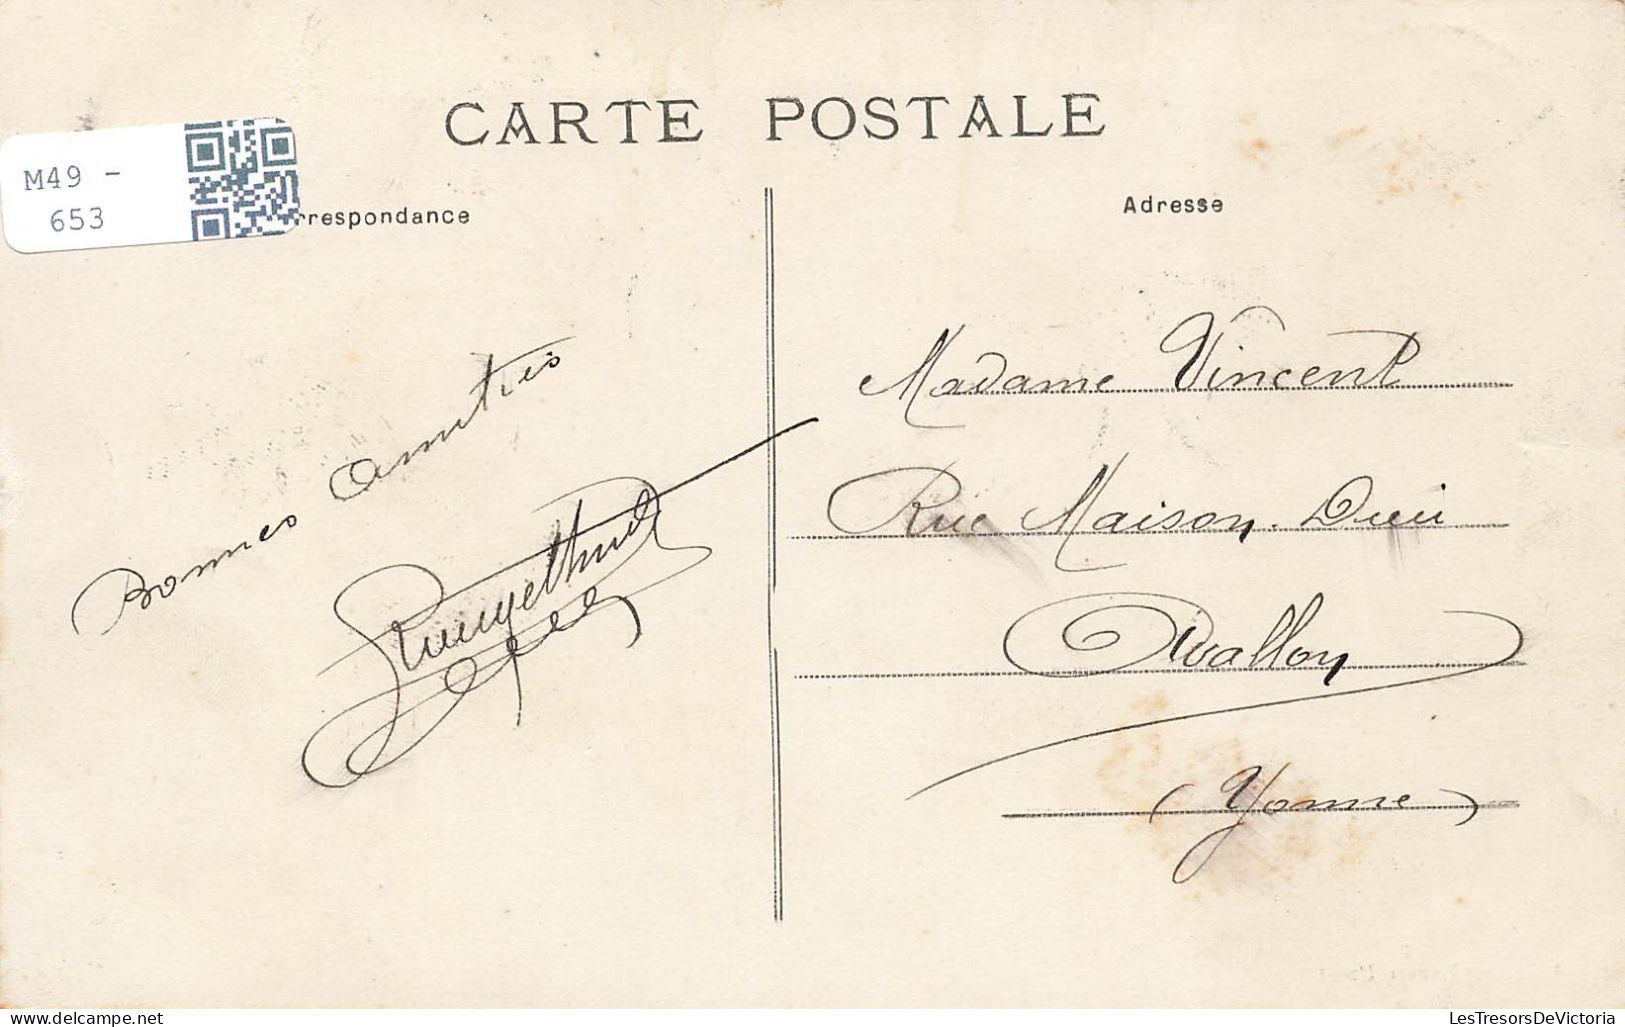 CARTE POSTALE
M49 -
653
rrespondance
Adresse
Bonnes Amitiés
Madame Vincent
Rue Maison. Dieu
Avallon
(Yonne)
LesTresorsDeVictoria